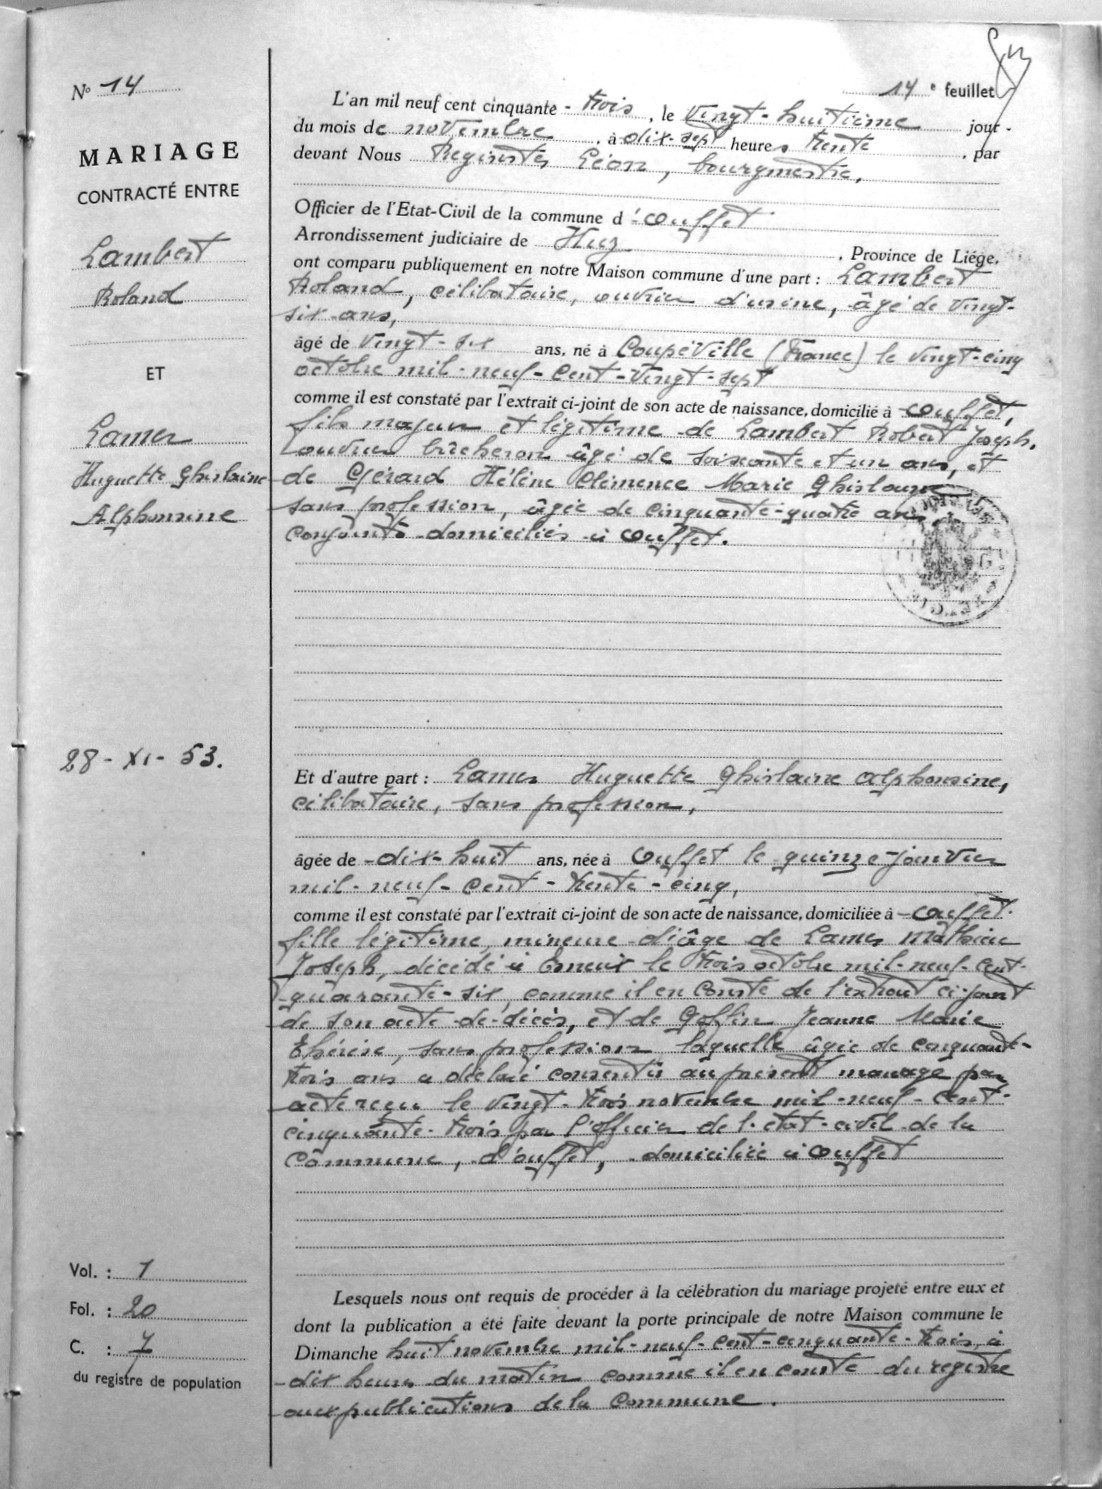 N° 14
14 e feuillet
MARIAGE
CONTRACTÉ ENTRE
Lambert
Roland
ET
Lamer
Huguette Ghislaine
Alphonsine
28-XI-53.
Vol. : 1
Fol. : 20
C. : 7
du registre de population
L'an mil neuf cent cinquante - trois, le vingt-huitième jour
du mois de novembre, à dix-sept heures trente, par
devant Nous Léon, bourgmestre,
Officier de l'Etat-Civil de la commune d'Ouffet
Arrondissement judiciaire de Huy, Province de Liége,
ont comparu publiquement en notre Maison commune d'une part : Lambert
Roland, célibataire, ouvrier d'usine, âgé de vingt-
six ans,
âgé de vingt-six ans, né à Coupéville (France) le vingt-cinq
octobre mil-neuf-cent-vingt-sept
comme il est constaté par l'extrait ci-joint de son acte de naissance, domicilié à Ouffet,
fils majeur et légitime de Lambert Robert Joseph,
ouvrier bûcheron âgé de soixante et un ans, et
de Gérard Hélène Clémence Marie Ghislaine
sans profession, âgée de cinquante-quatre ans
conjoints domiciliés à Ouffet.
Et d'autre part : Lamer Huguette Ghislaine Alphonsine,
célibataire, sans profession,
âgée de dix-huit ans, née à Ouffet le quinze janvier
mil-neuf-cent-trente-cinq,
comme il est constaté par l'extrait ci-joint de son acte de naissance, domiciliée à Ouffet.
fille légitime, mineure d'âge de Lamer Mathieu
Joseph, décédé à Esneux le trois octobre mil-neuf-cent-
quarante-six, comme il en conste de l'extrait ci-joint
de son acte de décès, et de Goffin Jeanne Marie
Thérèse, sans profession laquelle âgée de cinquante-
trois ans a déclaré consentir au présent mariage par
acte reçu le vingt-trois novembre mil-neuf-cent-
cinquante-trois par l'officier de l'état-civil de la
commune, d'Ouffet, domiciliée à Ouffet
Lesquels nous ont requis de procéder à la célébration du mariage projeté entre eux et
dont la publication a été faite devant la porte principale de notre Maison commune le
Dimanche huit novembre mil-neuf-cent-cinquante-trois, à
dix heures du matin comme il en conste du registre
aux publications de la commune.